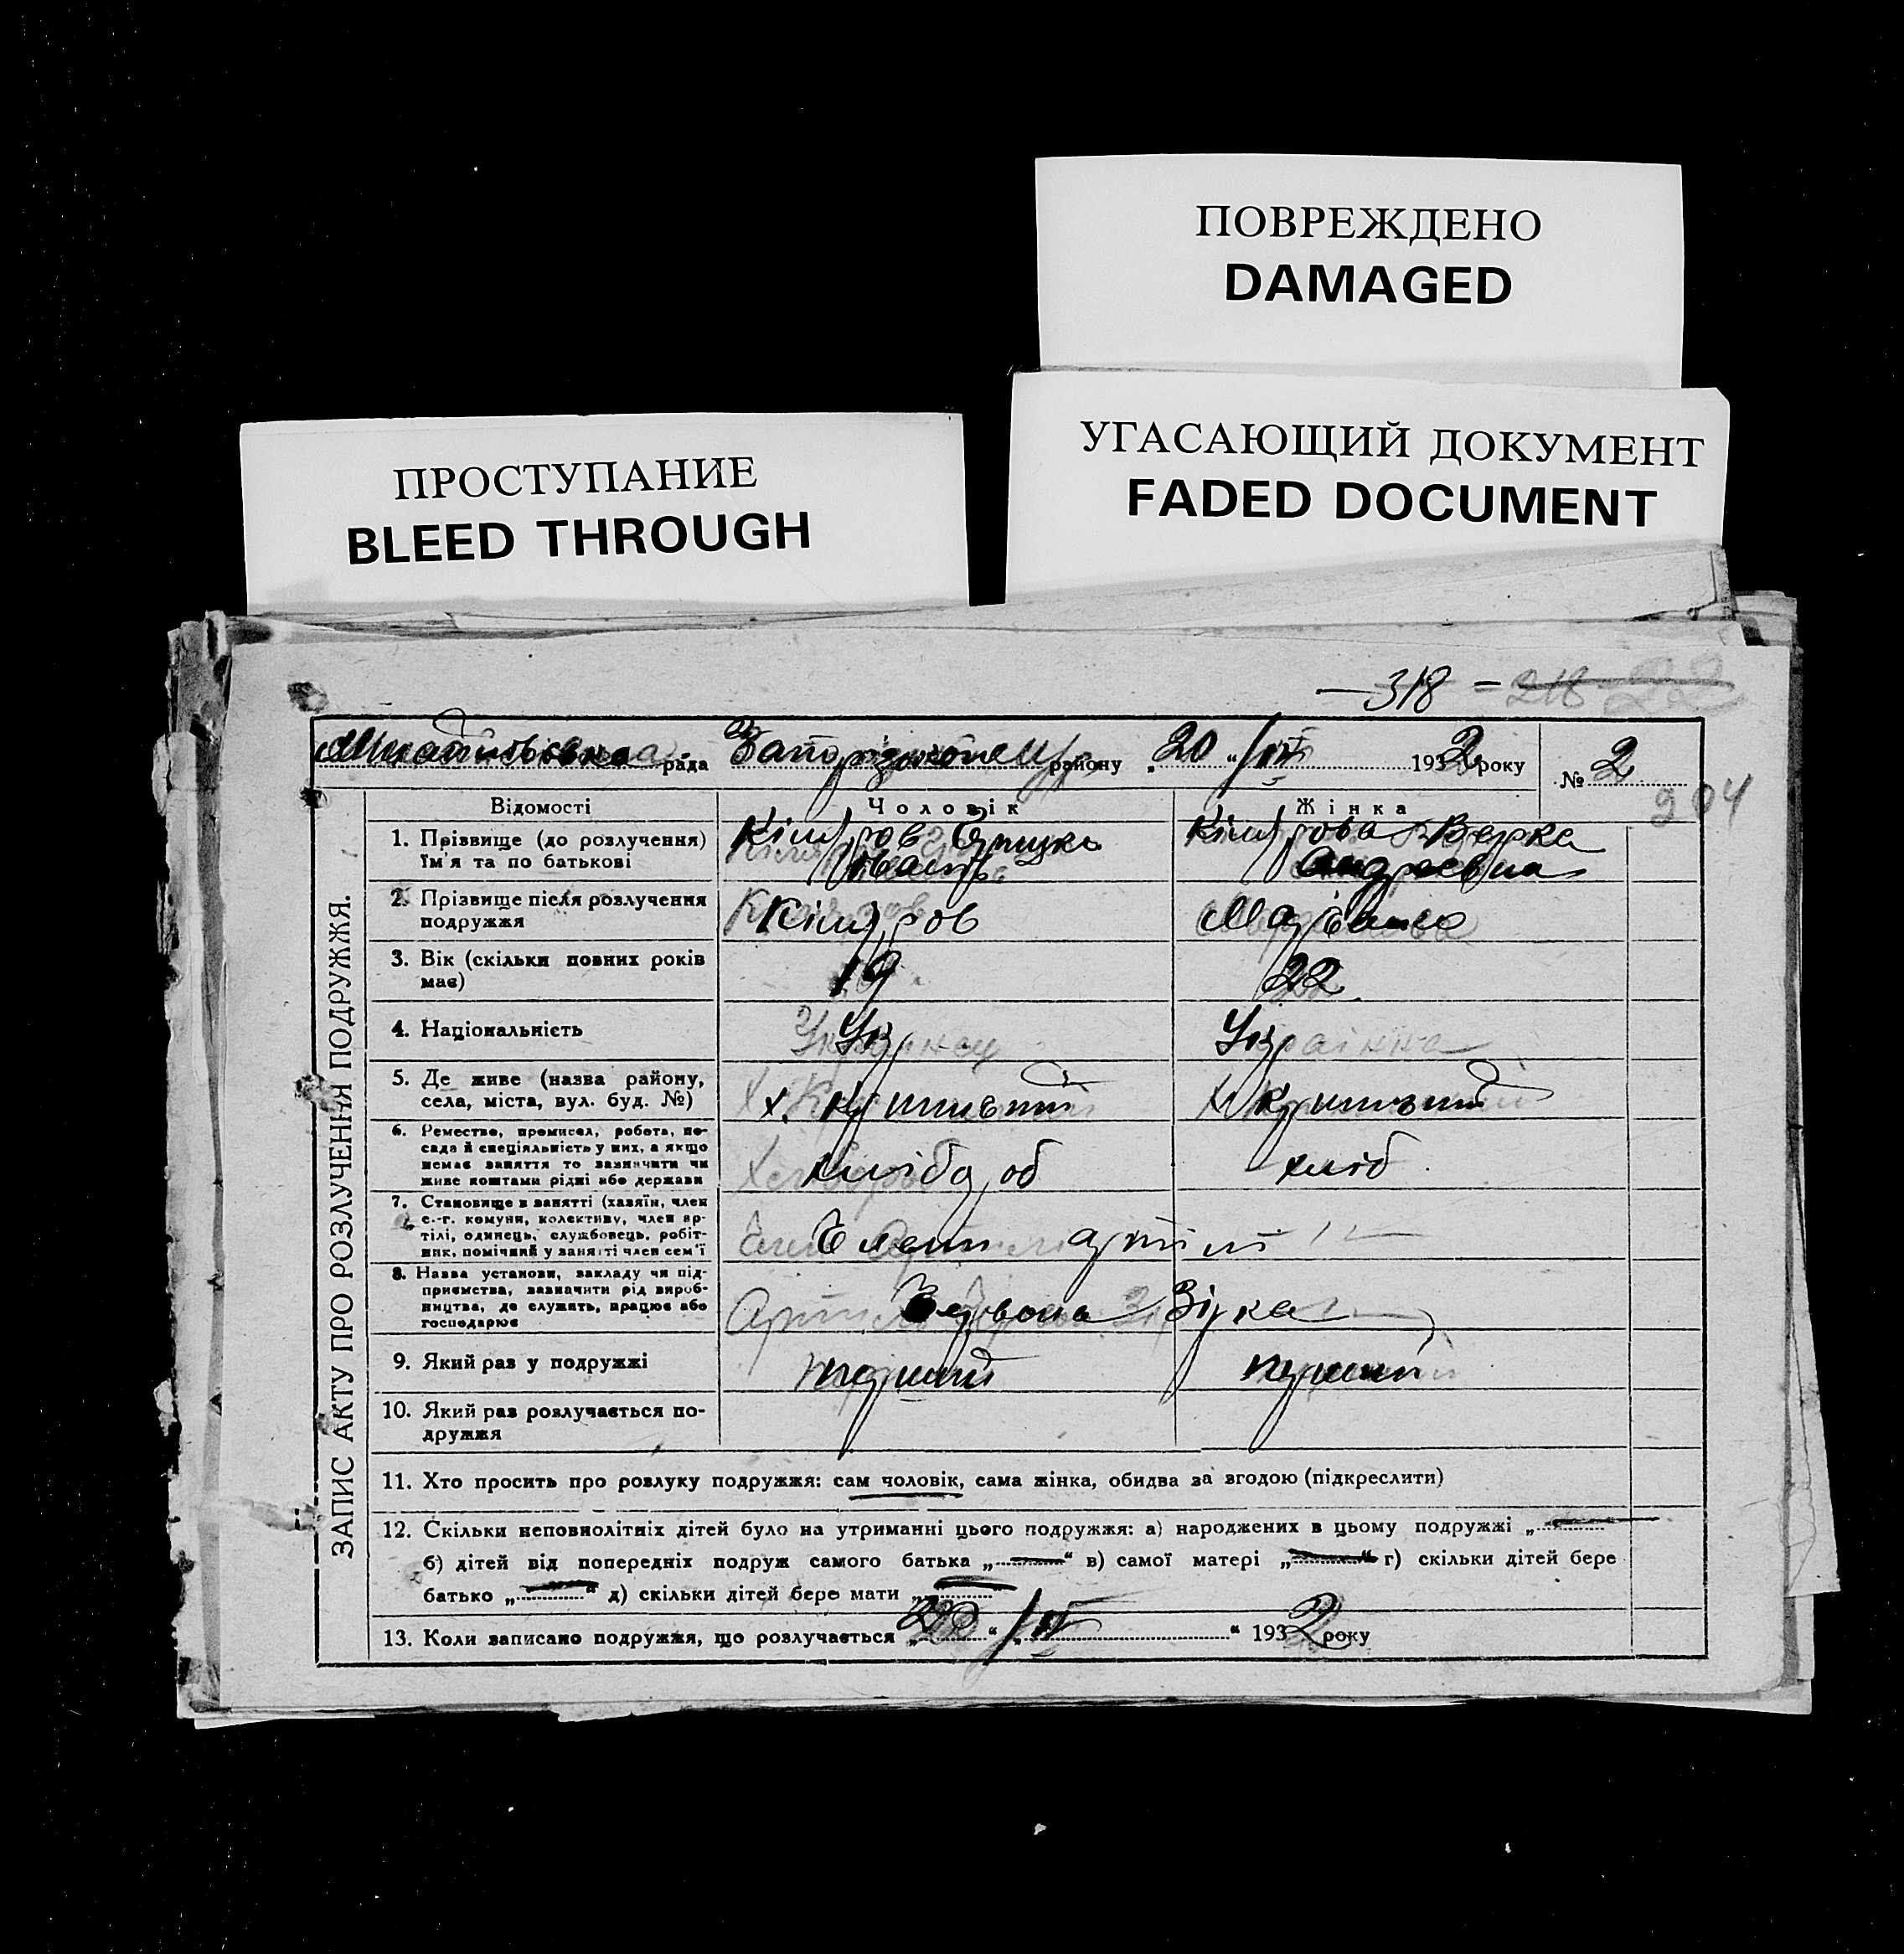 ПОВРЕЖДЕНО
DAMAGED
УГАСАЮЩИЙ ДОКУМЕНТ
FADED DOCUMENT
ПРОСТУПАНИЕ
BLEED THROUGH
— 318 – 218
рада району „20“ IV 1932 року № 2
204
ЗАПИС АКТУ ПРО РОЗЛУЧЕННЯ ПОДРУЖЖЯ.
Відомості Чоловік Жінка
1. Прізвище (до розлучення)
ім'я та по батькові
Андреевна
2. Прізвище після розлучення
подружжя
3. Вік (скільки повних років 19 22
має)
4. Національність Укр Українка
5. Де живе (назва району,
села, міста, вул. буд. №) х. х.
6. Ремество, промисел, робота, по-
сада й спеціяльність у них, а якщо
немає заняття то зазначити чи хлібороб хліб
живе коштами рідні або держави
7. Становище в занятті (хазяїн, член
с.-г. комуни, колективу, член ар-
тілі, одинець, службовець, робіт- Член артілі
ник, помічний у занятті член сем'ї
8. Назва установи, закладу чи під-
приємства, зазначити рід вироб-
ництва, де служить, працює або Червона Зірка
господарює
9. Який раз у подружжі перший перший
10. Який раз розлучається по-
дружжя
11. Хто просить про розлуку подружжя: сам чоловік, сама жінка, обидва за згодою (підкреслити)
12. Скільки неповнолітніх дітей було на утриманні цього подружжя: а) народжених в цьому подружжі „—“
б) дітей від попередніх подруж самого батька „—“ в) самої матері „—“ г) скільки дітей бере
батько „—“ д) скільки дітей бере мати „—
13. Коли записано подружжя, що розлучається „20“ „IV“ 1932 року